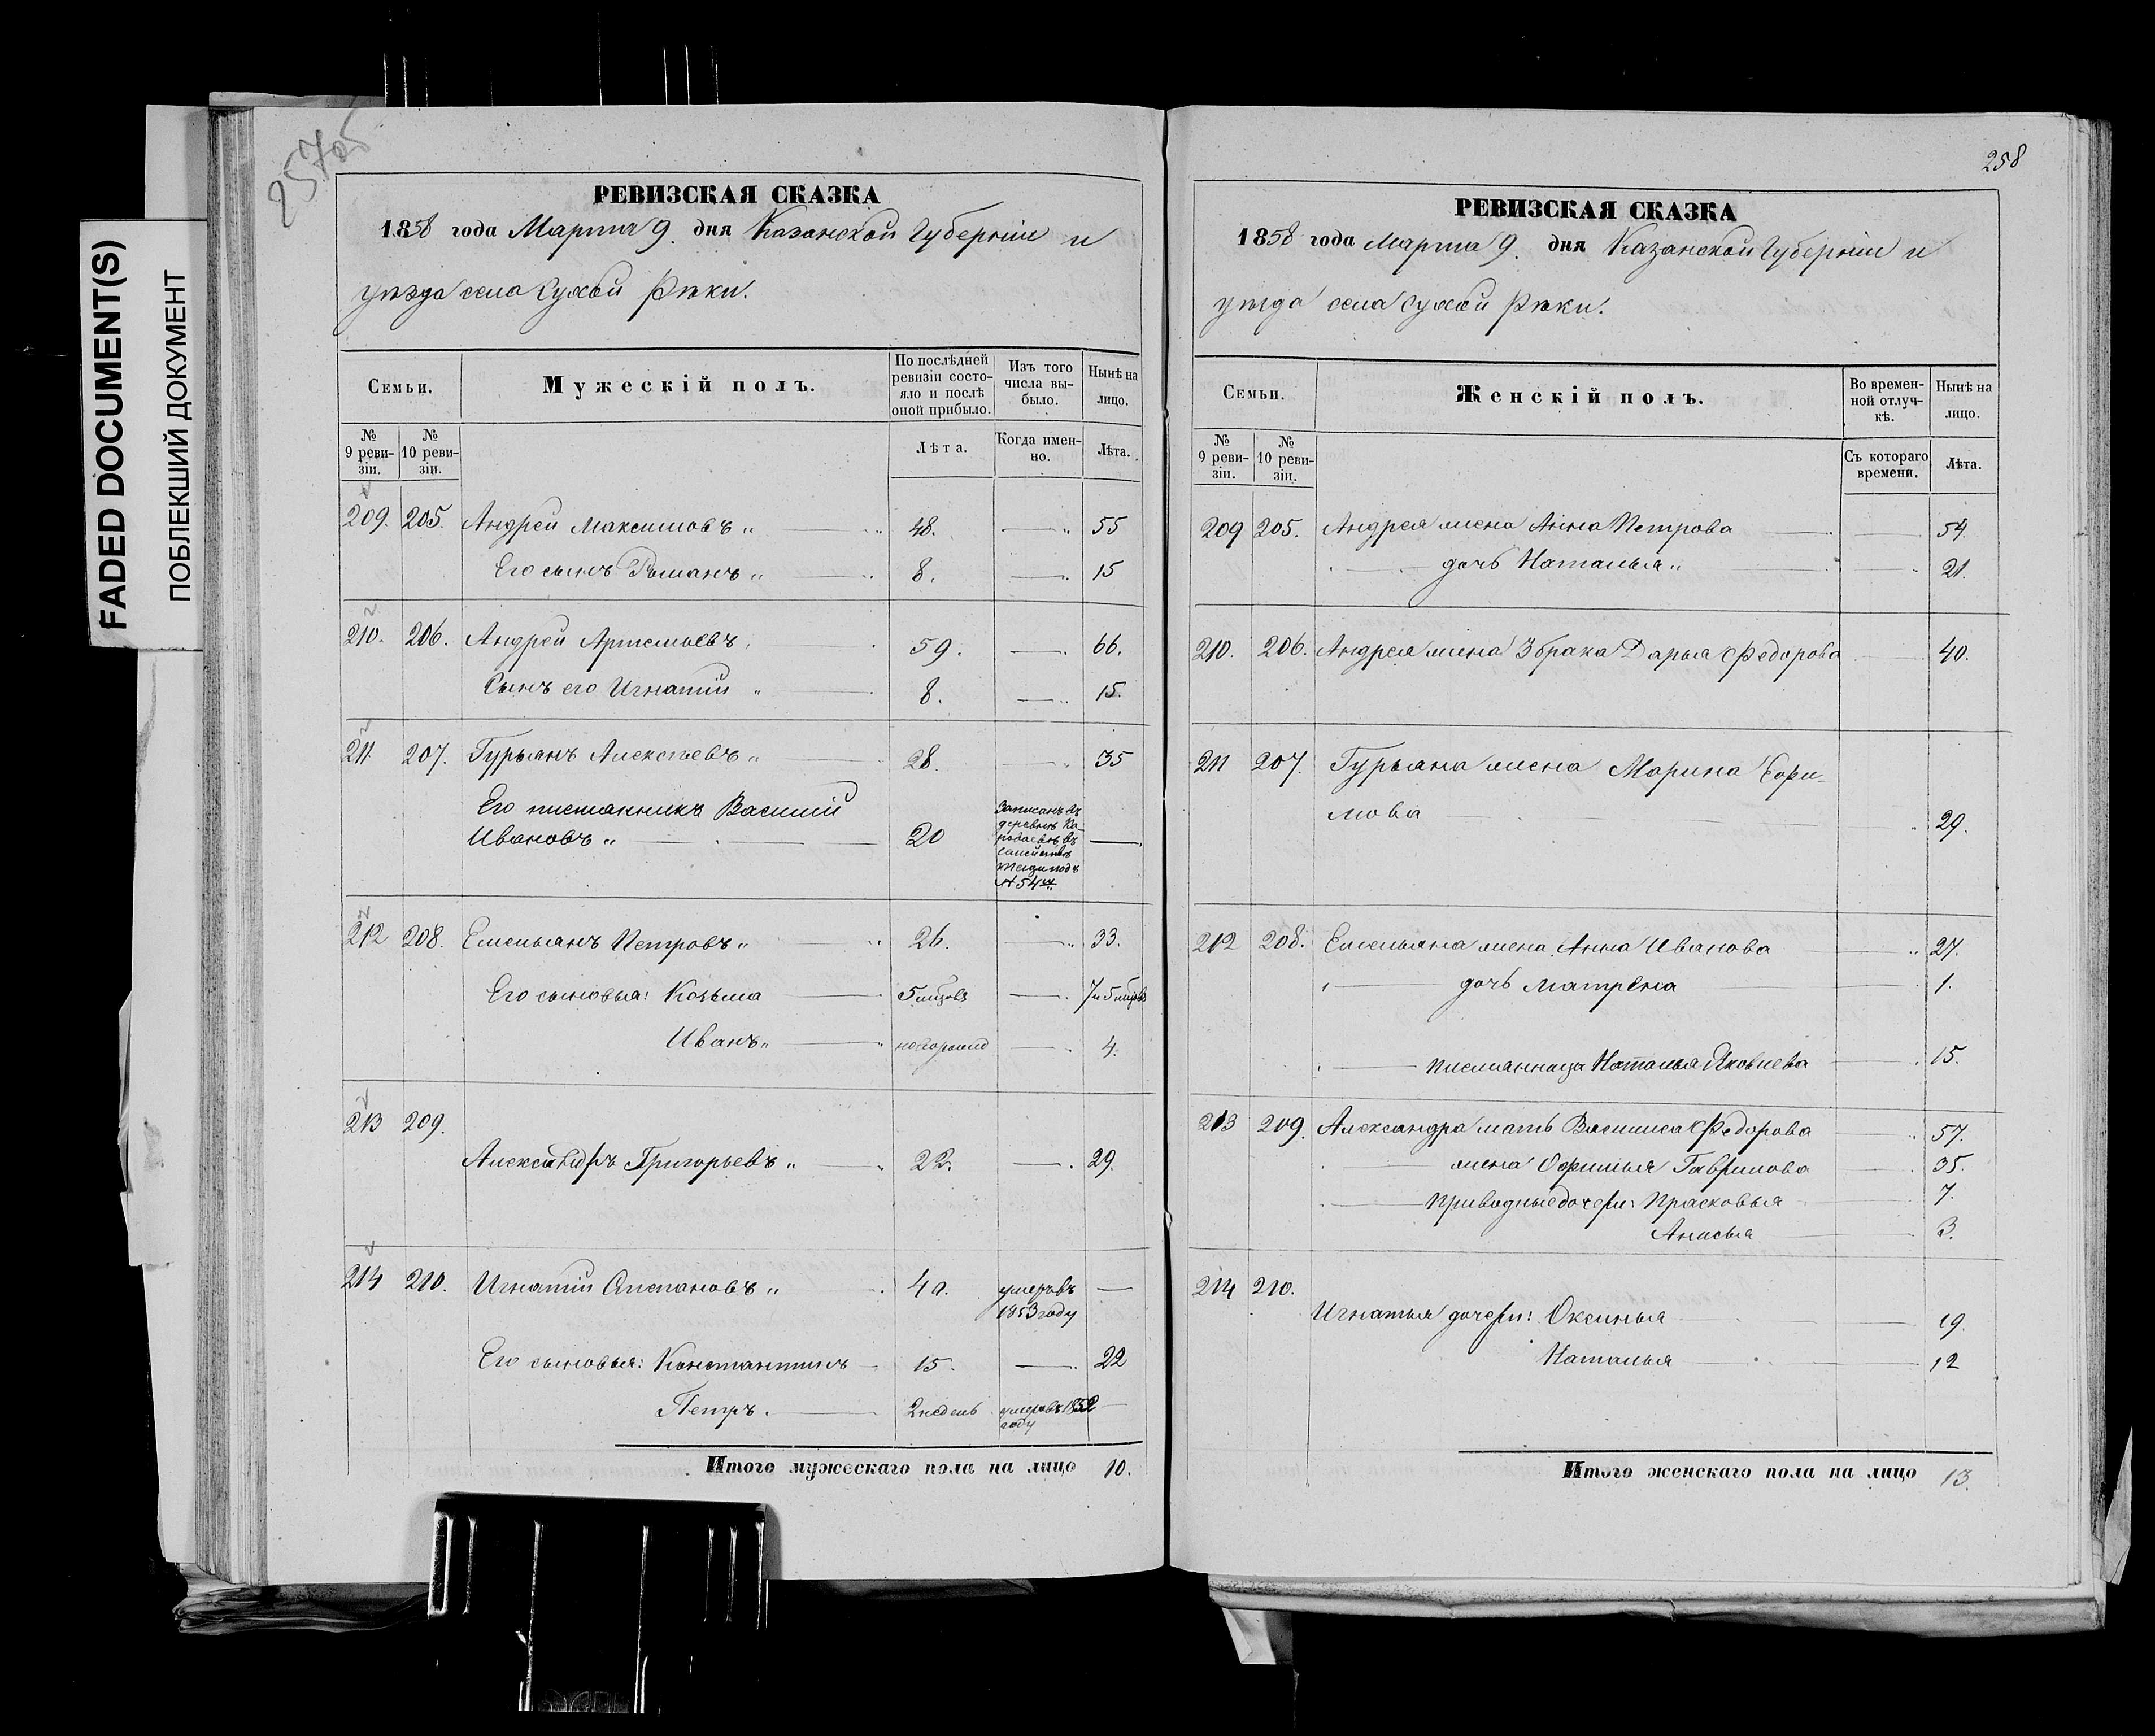 FADED DOCUMENT(S)
ПОБЛЕКШИЙ ДОКУМЕНТ
257об
РЕВИЗСКАЯ СКАЗКА
1858 года Марта 9. дня Казанской Губерніи и
уѣзда села Сухой Рѣки.
Семьи. Мужескій полъ. По послѣдней ревизіи состояло и послѣ оной прибыло. Изъ того числа выбыло. Нынѣ на лицо.
№ 9 ревизіи. № 10 ревизіи. Лѣта. Когда именно. Лѣта.
209. 205. Андрей Максимовъ „ 48. — 55
Его сынъ Романъ „ 8. — 15
210. 206. Андрей Артемьевъ. 59. — 66.
Сынъ его Игнатій „ 8. — 15.
211. 207. Гурьянъ Алексѣевъ „ 28. — 35
Его племянникъ Василій
Ивановъ „ 20 —
Записанъ въ
деревнѣ
въ
семействѣ
подъ
№ 54м
212 208. Емельянъ Петровъ „ 26. — 33.
Его сыновья: Козьма 5 мцовъ — 7 и 5 мцовъ
Иванъ „ новорожд — 4.
213 209.
Александръ Григорьевъ „ 22. — 29.
214 210. Игнатій Степановъ „ 40. умеръ въ —
1853 году
Его сыновья: Константинъ 15. — 22
Петръ. 2 недель умеръ въ 1852 —
году
Итого мужескаго пола на лицо 10.
258
РЕВИЗСКАЯ СКАЗКА
1858 года Марта 9. дня Казанской Губерніи и
уѣзда села Сухой Рѣки.
Семьи. Женскій полъ. Во временной отлучкѣ. Нынѣ на лицо.
№ 9 ревизіи. № 10 ревизіи. Съ котораго времени. Лѣта.
209 205. Андрея жена Анна Петрова 54.
дочь Наталья „ 21.
210. 206. Андрея жена 3 брака Дарья Федорова 40.
211 207. Гурьяна жена Марина Ефи
мова 29.
212 208. Емельяна жена Анна Иванова 27.
дочь Матрена 1.
племянница Наталья Яковлева 15.
213 209. Александра мать Васинса Федорова 57.
жена Офимья Гаврилова 35.
Приводные дочери: Прасковья 7.
Анисья 3.
214 210.
Игнатья дочери: Оксинья 19.
Наталья 12
Итого женскаго пола на лицо 13.